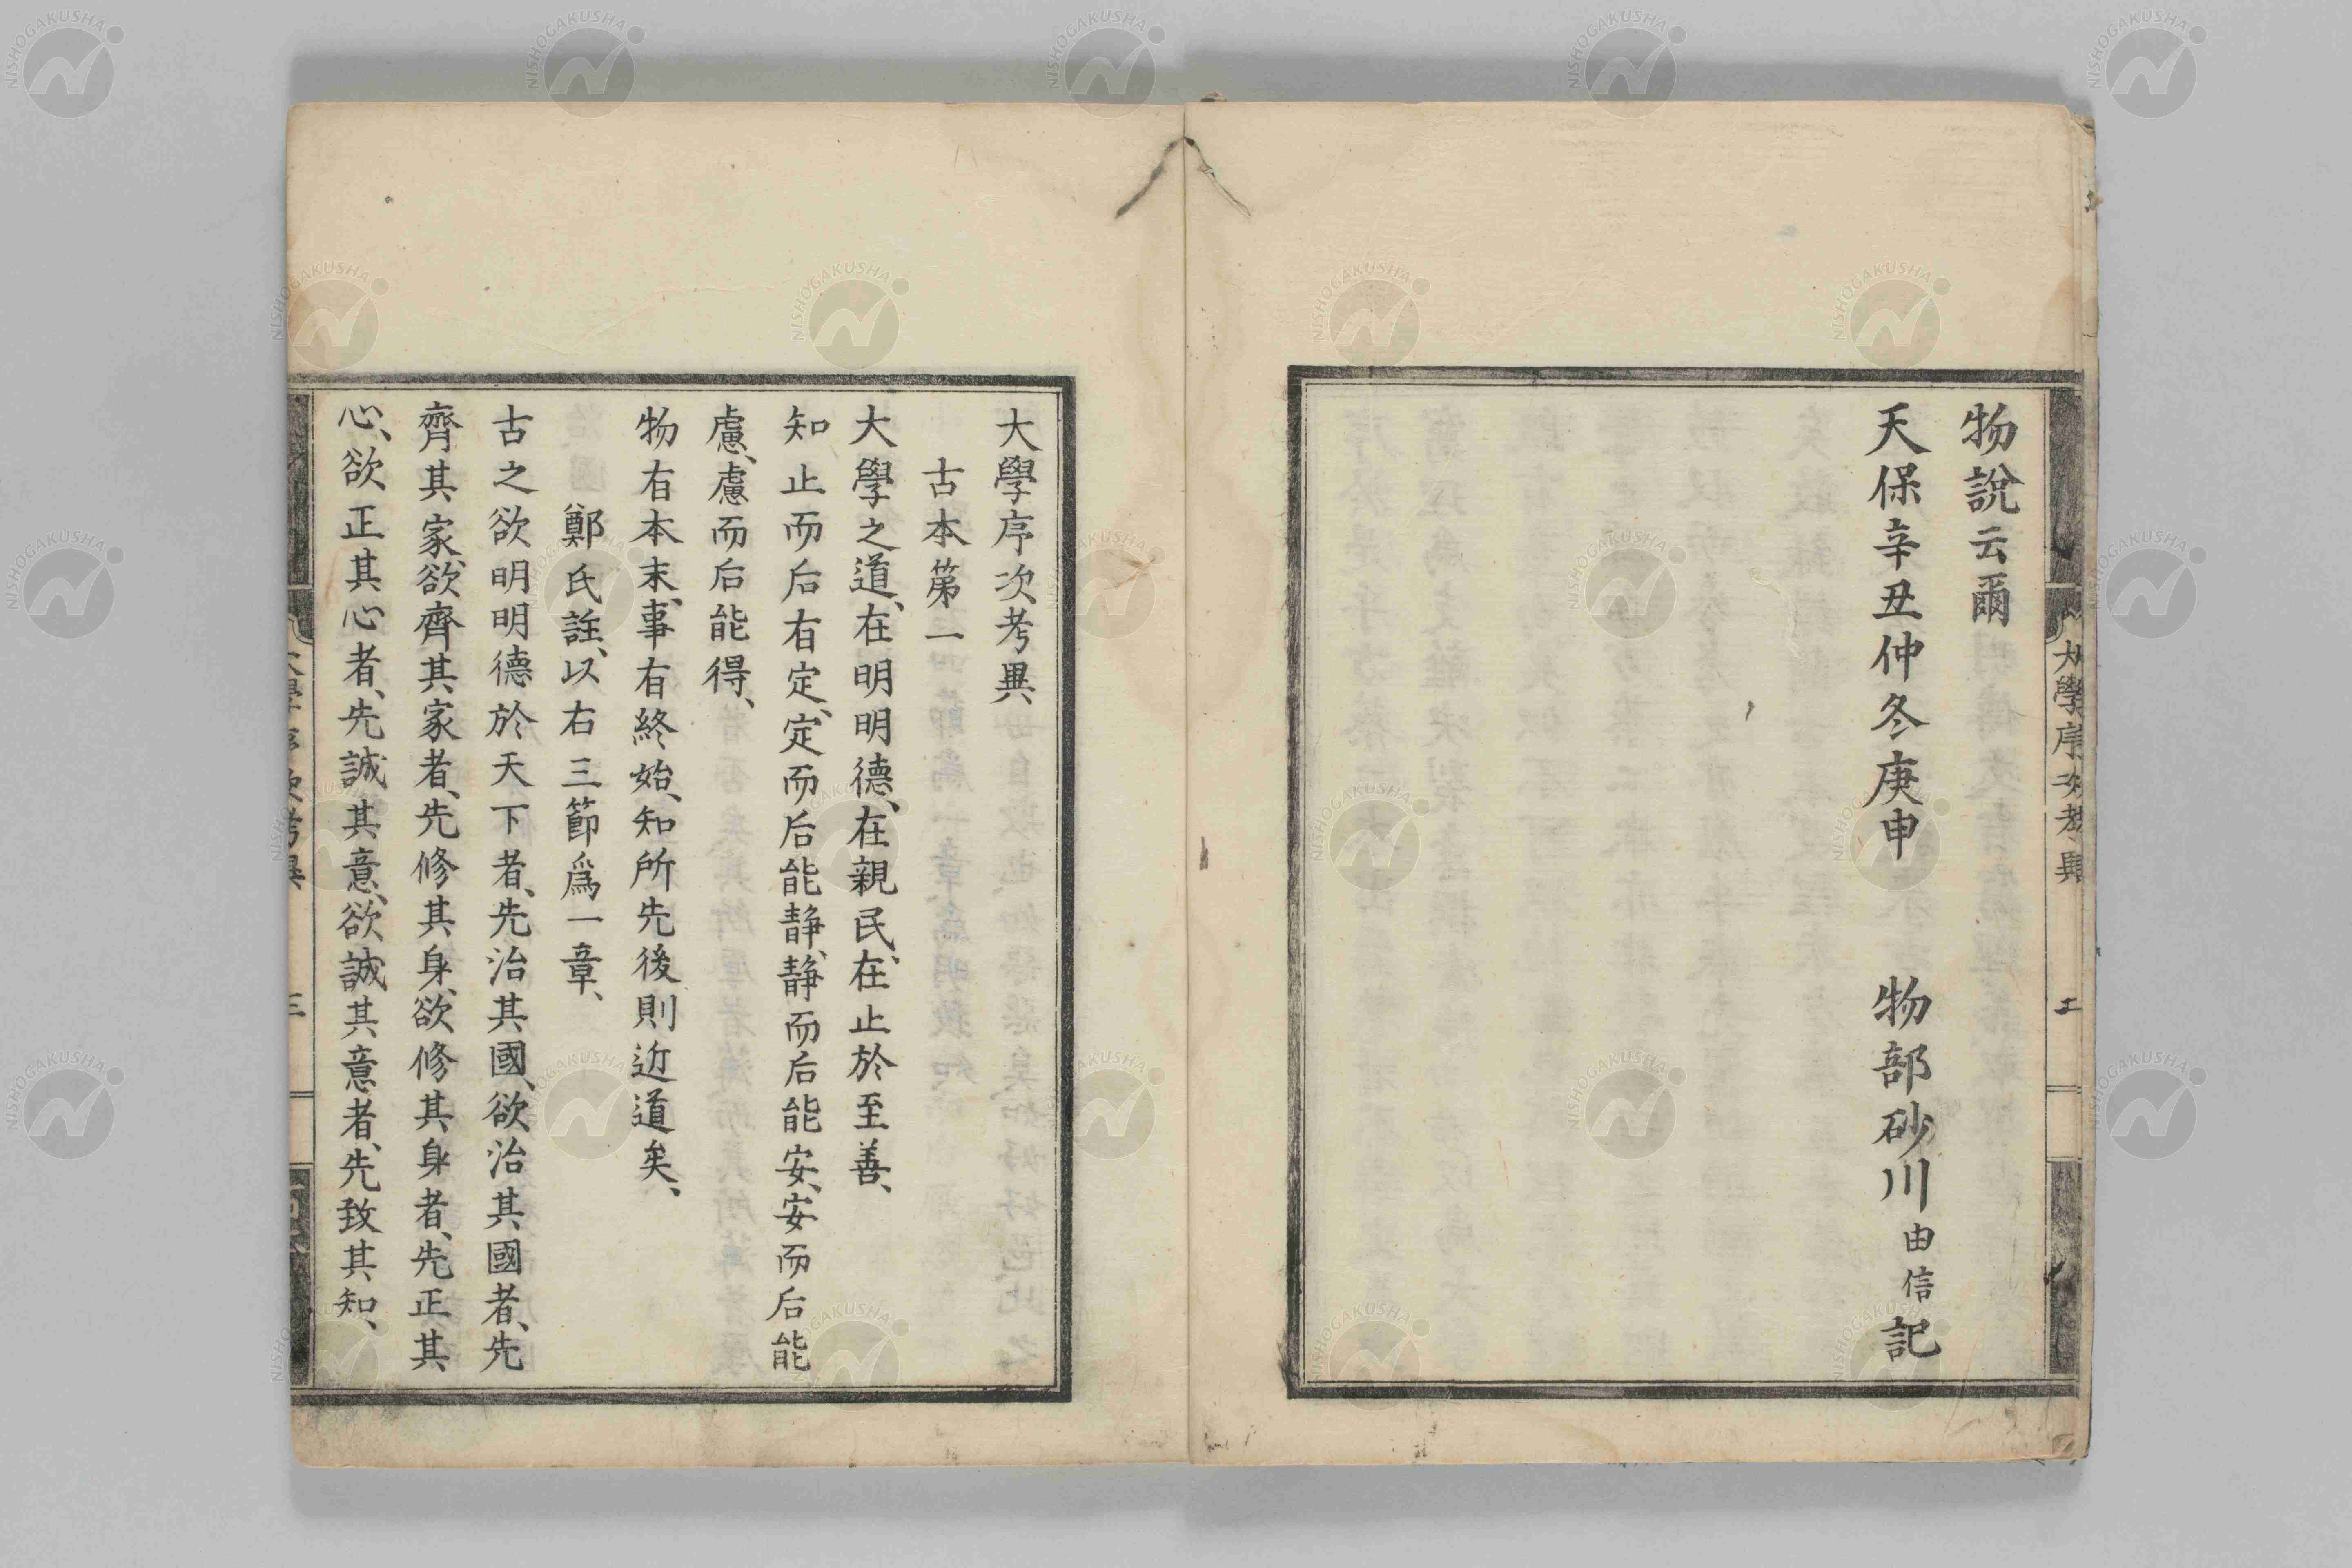 物說云爾
天保辛丑仲冬庚申 物部砂川由信記
大學序次考異
大學序次考異
古本第一
大學之道、在明明德、在親民、在止於至善、
知止而后有定、定而后能靜、靜而后能安、安而后能
慮、慮而后能得、
物有本末、事有終始、知所先後則近道矣、
鄭氏註、以右三節爲一章、
古之欲明明德於天下者、先治其國、欲治其國者、先
齊其家、欲齊其家者、先修其身、欲修其身者、先正其
心、欲正其心者、先誠其意、欲誠其意者、先致其知、
三
NISHOGAKUSHA